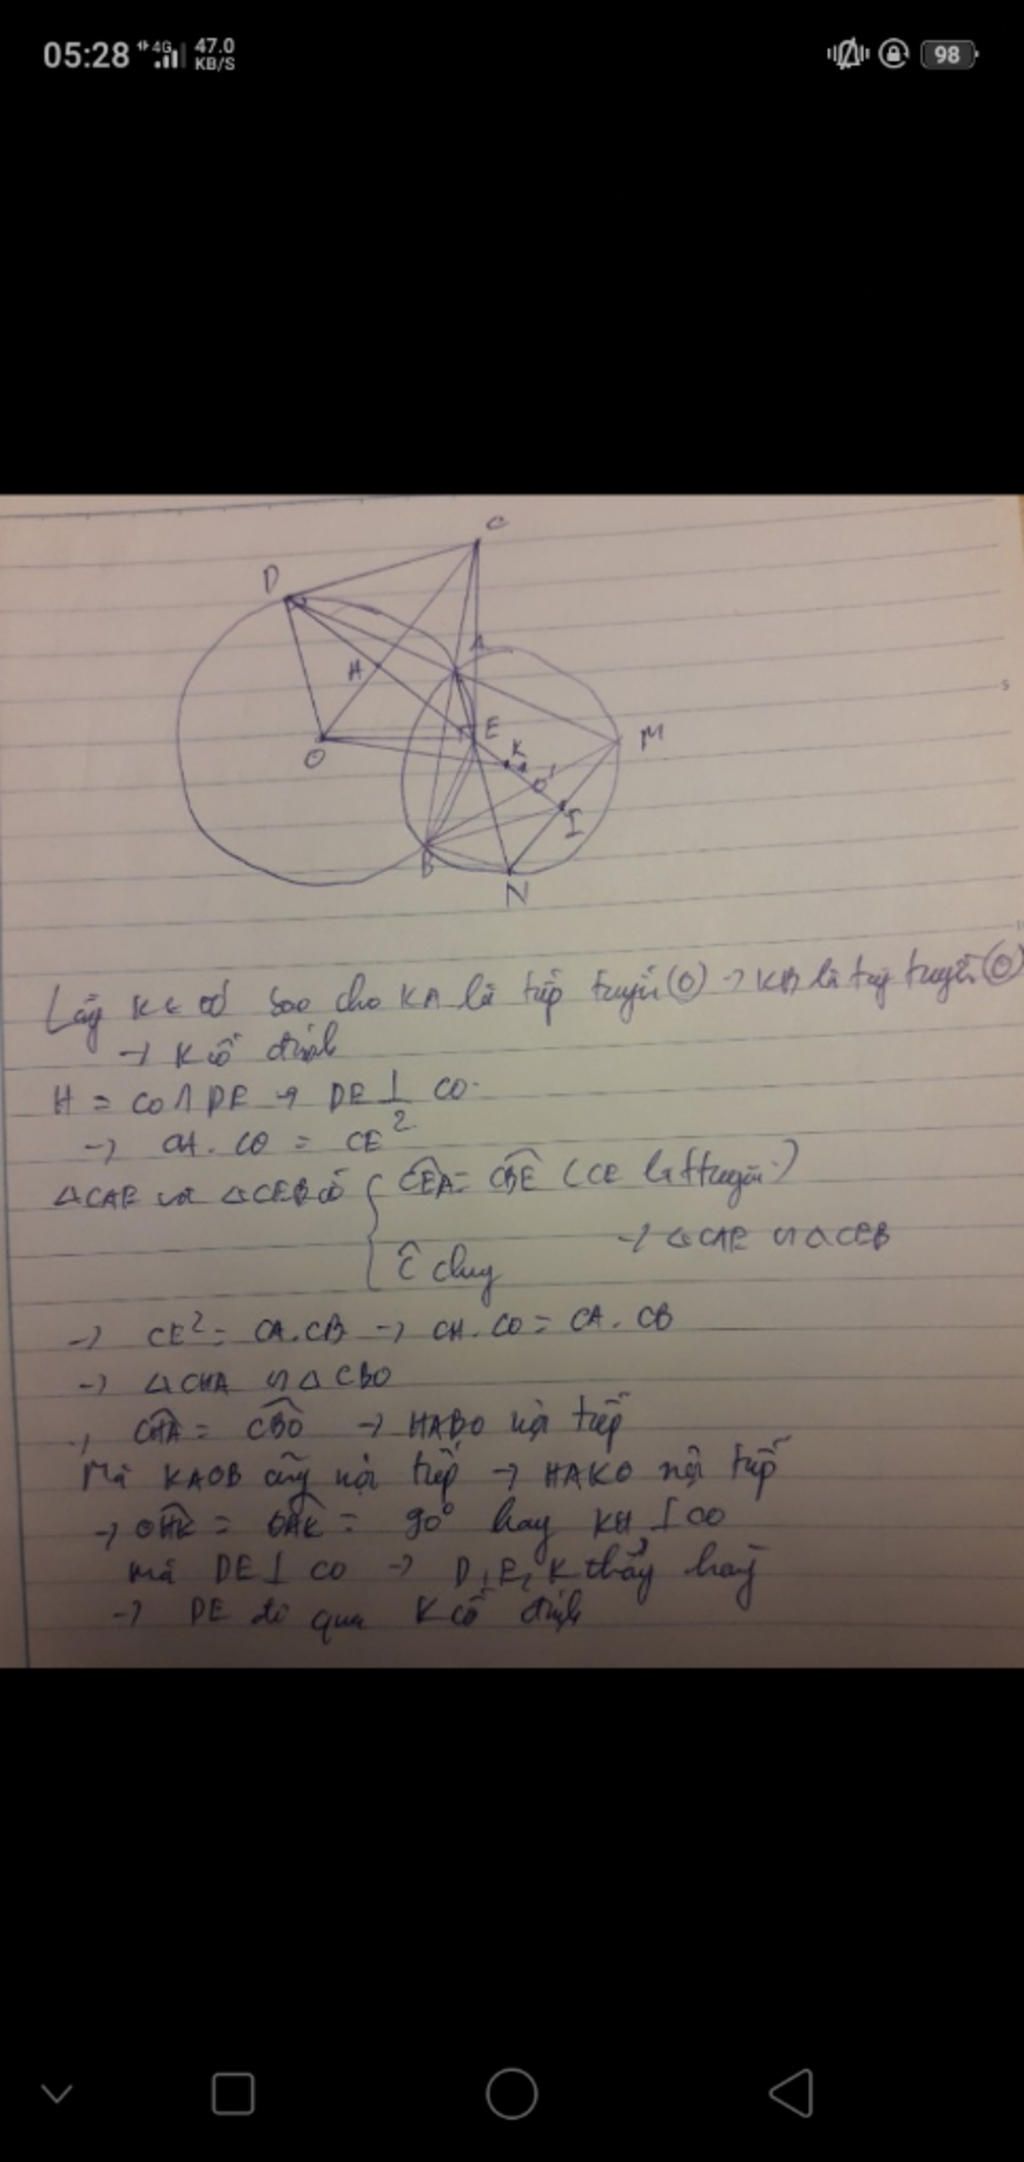 05:28 4G 47.0 KB/S 98
C
D
A
H
E
M
K
O
O'
I
B
N
Lấy K ∈ OO' sao cho KA là tiếp tuyến (O) → KB là tiếp tuyến (O)
→ K cố định
H = CO ∩ DE → DE ⊥ CO
→ CH. CO = CE²
△CAE và △CEB có { CEA = CBE (CE là ttuyến)
Ĉ chung → △CAE ∽ △CEB
→ CE² = CA.CB → CH.CO = CA.CB
→ △CHA ∽ △CBO
→ CHA = CBO → HABO nội tiếp
Mà KAOB cũng nội tiếp → HAKO nội tiếp
→ OHK = OAK = 90° hay KH ⊥ CO
mà DE ⊥ CO → D, E, K thẳng hàng
→ DE đi qua K cố định